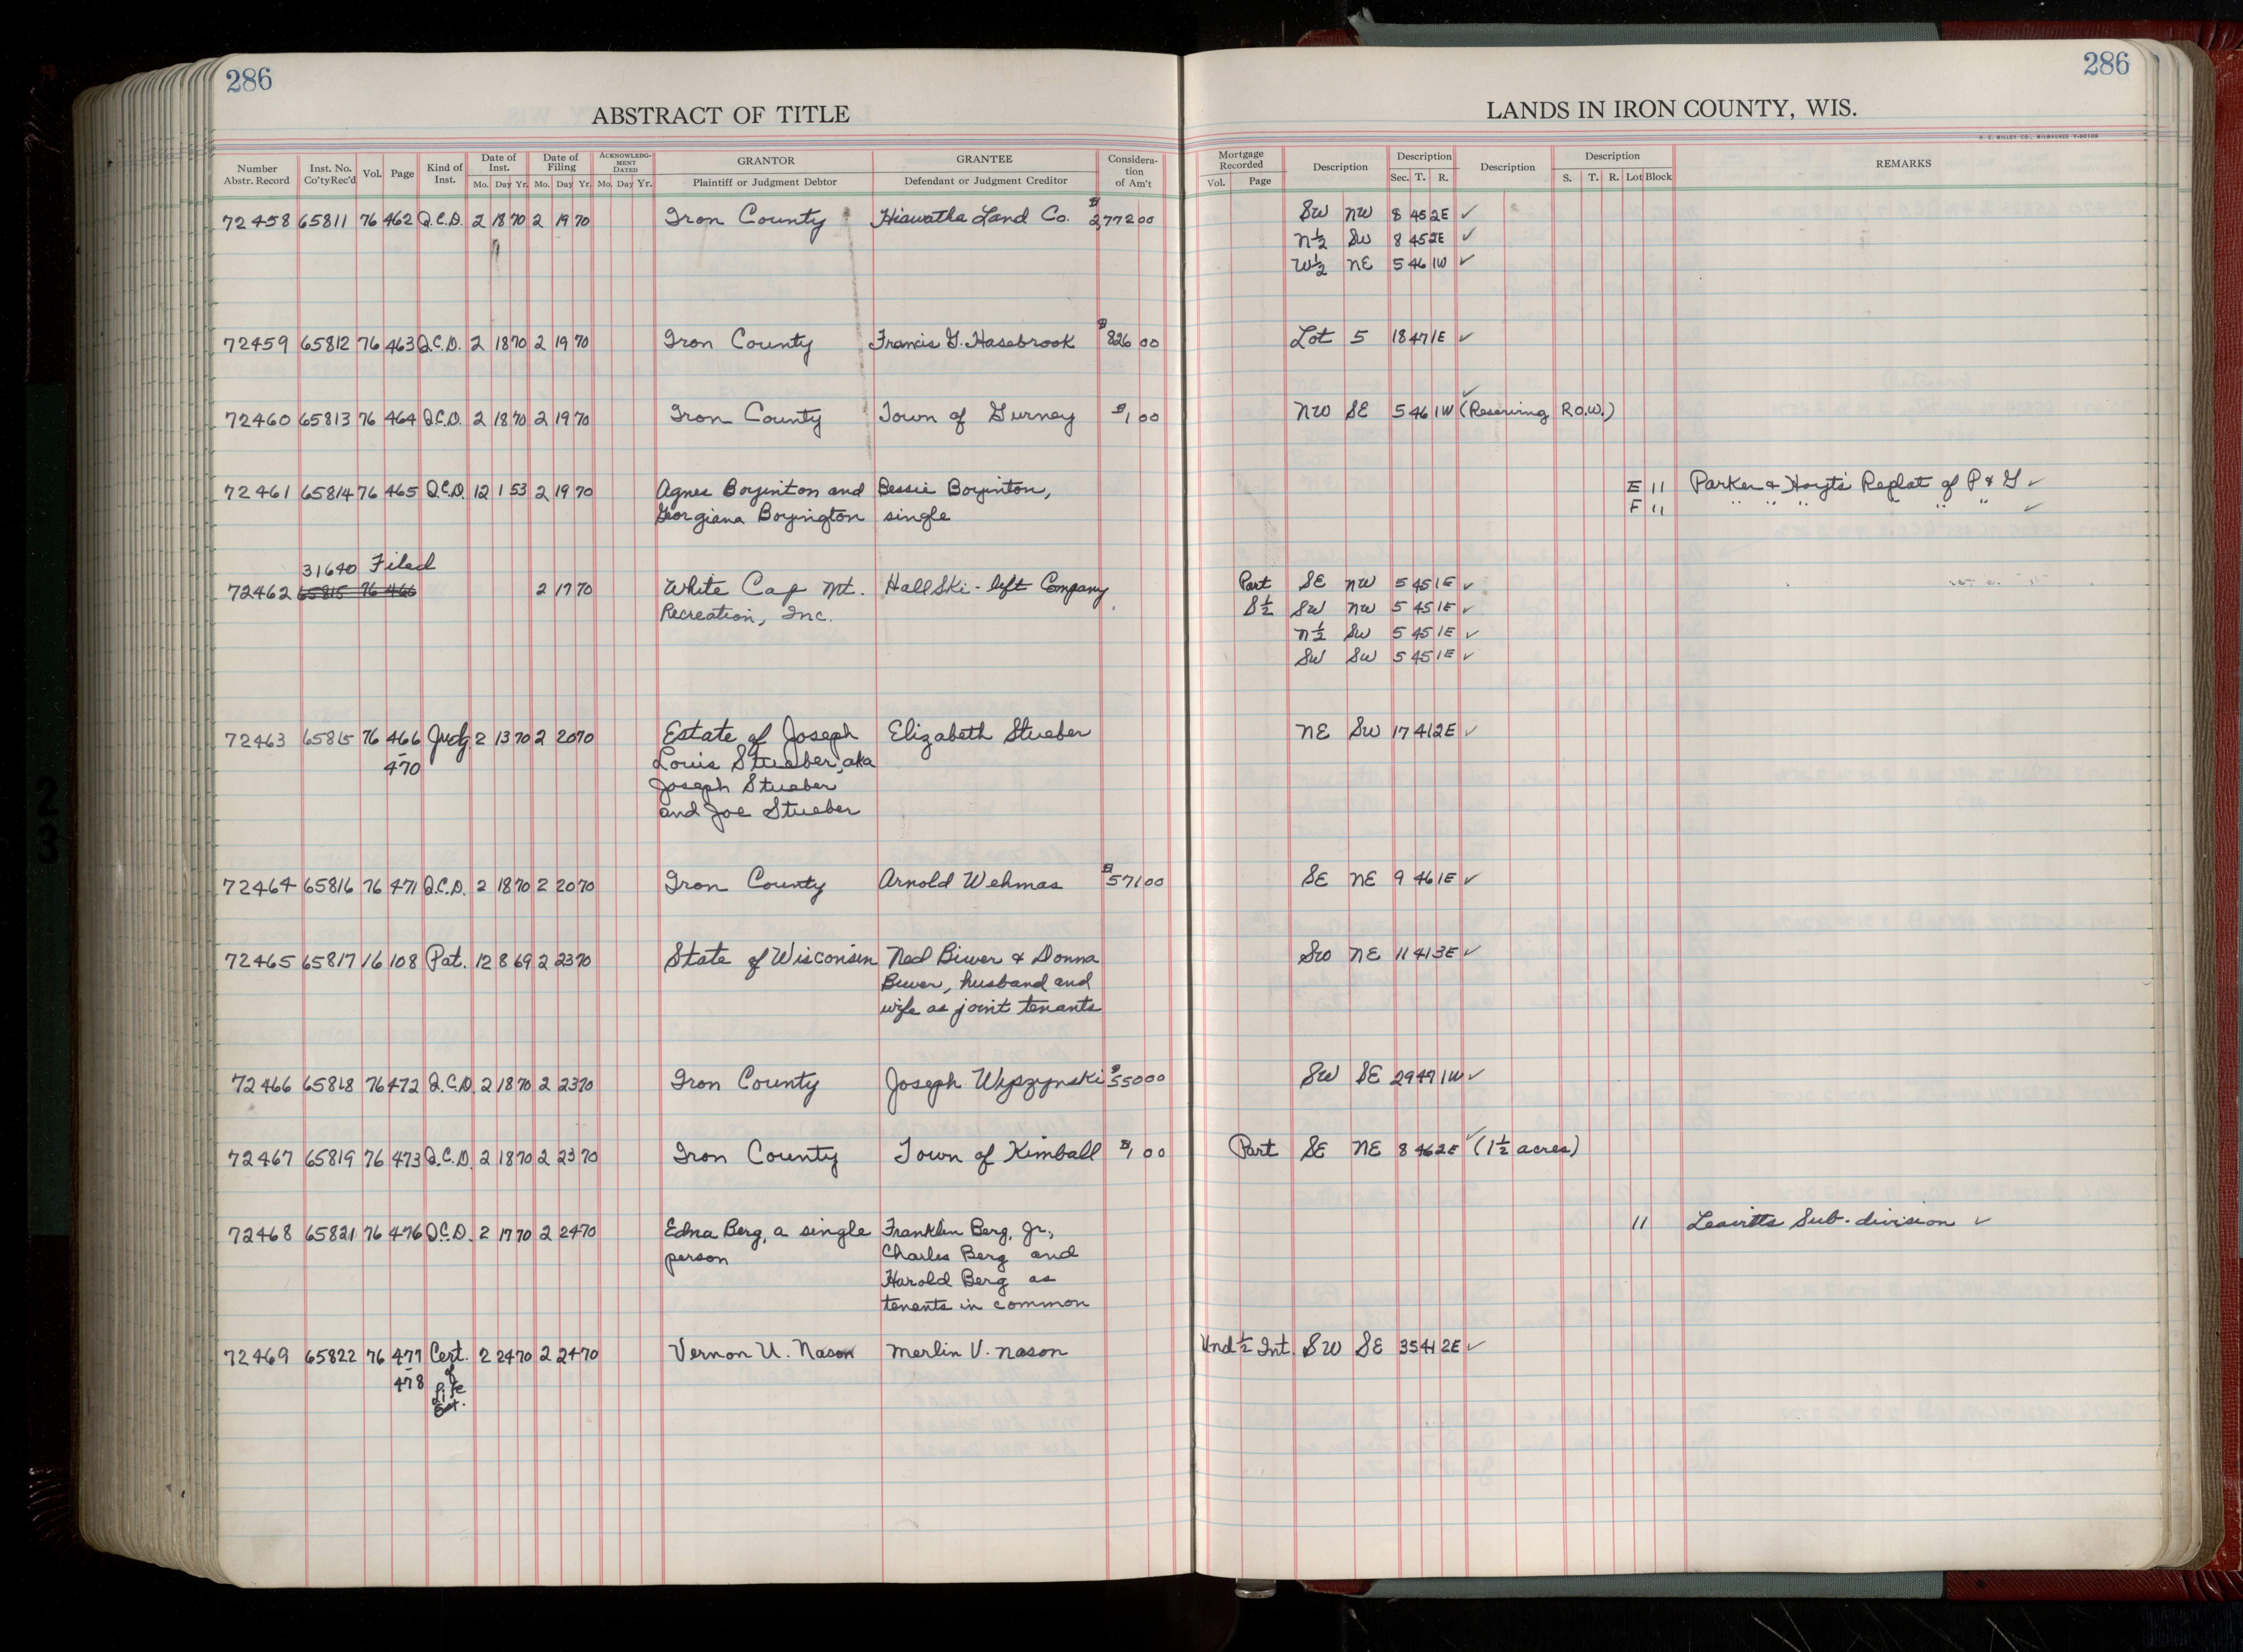 286
ABSTRACT OF TITLE
Number Abstr. Record | Inst. No. Co'ty Rec'd | Vol. | Page | Kind of Inst. | Date of Inst. Mo. Day Yr. | Date of Filing Mo. Day Yr. | ACKNOWLEDGMENT DATED Mo. Day Yr. | GRANTOR Plaintiff or Judgment Debtor | GRANTEE Defendant or Judgment Creditor | Consideration of Am't
72458 65811 76 462 Q.C.D. 2 18 70 2 19 70 Iron County Hiawatha Land Co. $2,772 00
72459 65812 76 463 Q.C.D. 2 18 70 2 19 70 Iron County Francis G. Hasebrook $826 00
72460 65813 76 464 Q.C.D. 2 18 70 2 19 70 Iron County Town of Gurney $1 00
72461 65814 76 465 Q.C.D. 12 1 53 2 19 70 Agnes Boyinton and Bessie Boyinton,
Georgiana Boyington single
31640 Filed
72462 65815 76 466 2 17 70 White Cap Mt. Hall Ski-lift Company
Recreation, Inc.
72463 65815 76 466 Judg 2 13 70 2 20 70 Estate of Joseph Elizabeth Stueber
- 470 Louis Stueber, aka
Joseph Stueber
and Joe Stueber
72464 65816 76 471 Q.C.D. 2 18 70 2 20 70 Iron County Arnold Wehmas $571 00
72465 65817 16 108 Pat. 12 8 69 2 23 70 State of Wisconsin Ned Biwer & Donna
Biwer, husband and
wife as joint tenants
72466 65818 76 472 Q.C.D. 2 18 70 2 23 70 Iron County Joseph Wyszynski $550 00
72467 65819 76 473 Q.C.D. 2 18 70 2 23 70 Iron County Town of Kimball $1 00
72468 65821 76 476 Q.C.D. 2 17 70 2 24 70 Edna Berg, a single Franklin Berg, Jr.,
person Charles Berg and
Harold Berg as
tenants in common
72469 65822 76 477 Cert. 2 24 70 2 24 70 Vernon U. Nason Merlin V. Nason
- 478 of
Life
Est.
286
LANDS IN IRON COUNTY, WIS.
H. C. MILLER CO., MILWAUKEE Y-90106
Mortgage Recorded Vol. Page | Description | Description Sec. T. R. | Description | Description S. T. R. Lot Block | REMARKS
SW NW 8 45 2E ✓
N½ SW 8 45 2E ✓
W½ NE 5 46 1W ✓
Lot 5 18 47 1E ✓
NW SE 5 46 1W ✓ (Reserving R.O.W.)
E 11 Parker & Hoyts Replat of P & G ✓
F 11 " " " " " " ✓
Part SE NW 5 45 1E ✓
S½ SW NW 5 45 1E ✓
N½ SW 5 45 1E ✓
SW SW 5 45 1E ✓
NE SW 17 41 2E ✓
SE NE 9 46 1E ✓
SW NE 11 41 3E ✓
SW SE 29 47 1W ✓
Part SE NE 8 46 2E ✓ (1½ acres)
11 Leavitts Sub-division ✓
Und ½ Int. SW SE 35 41 2E ✓